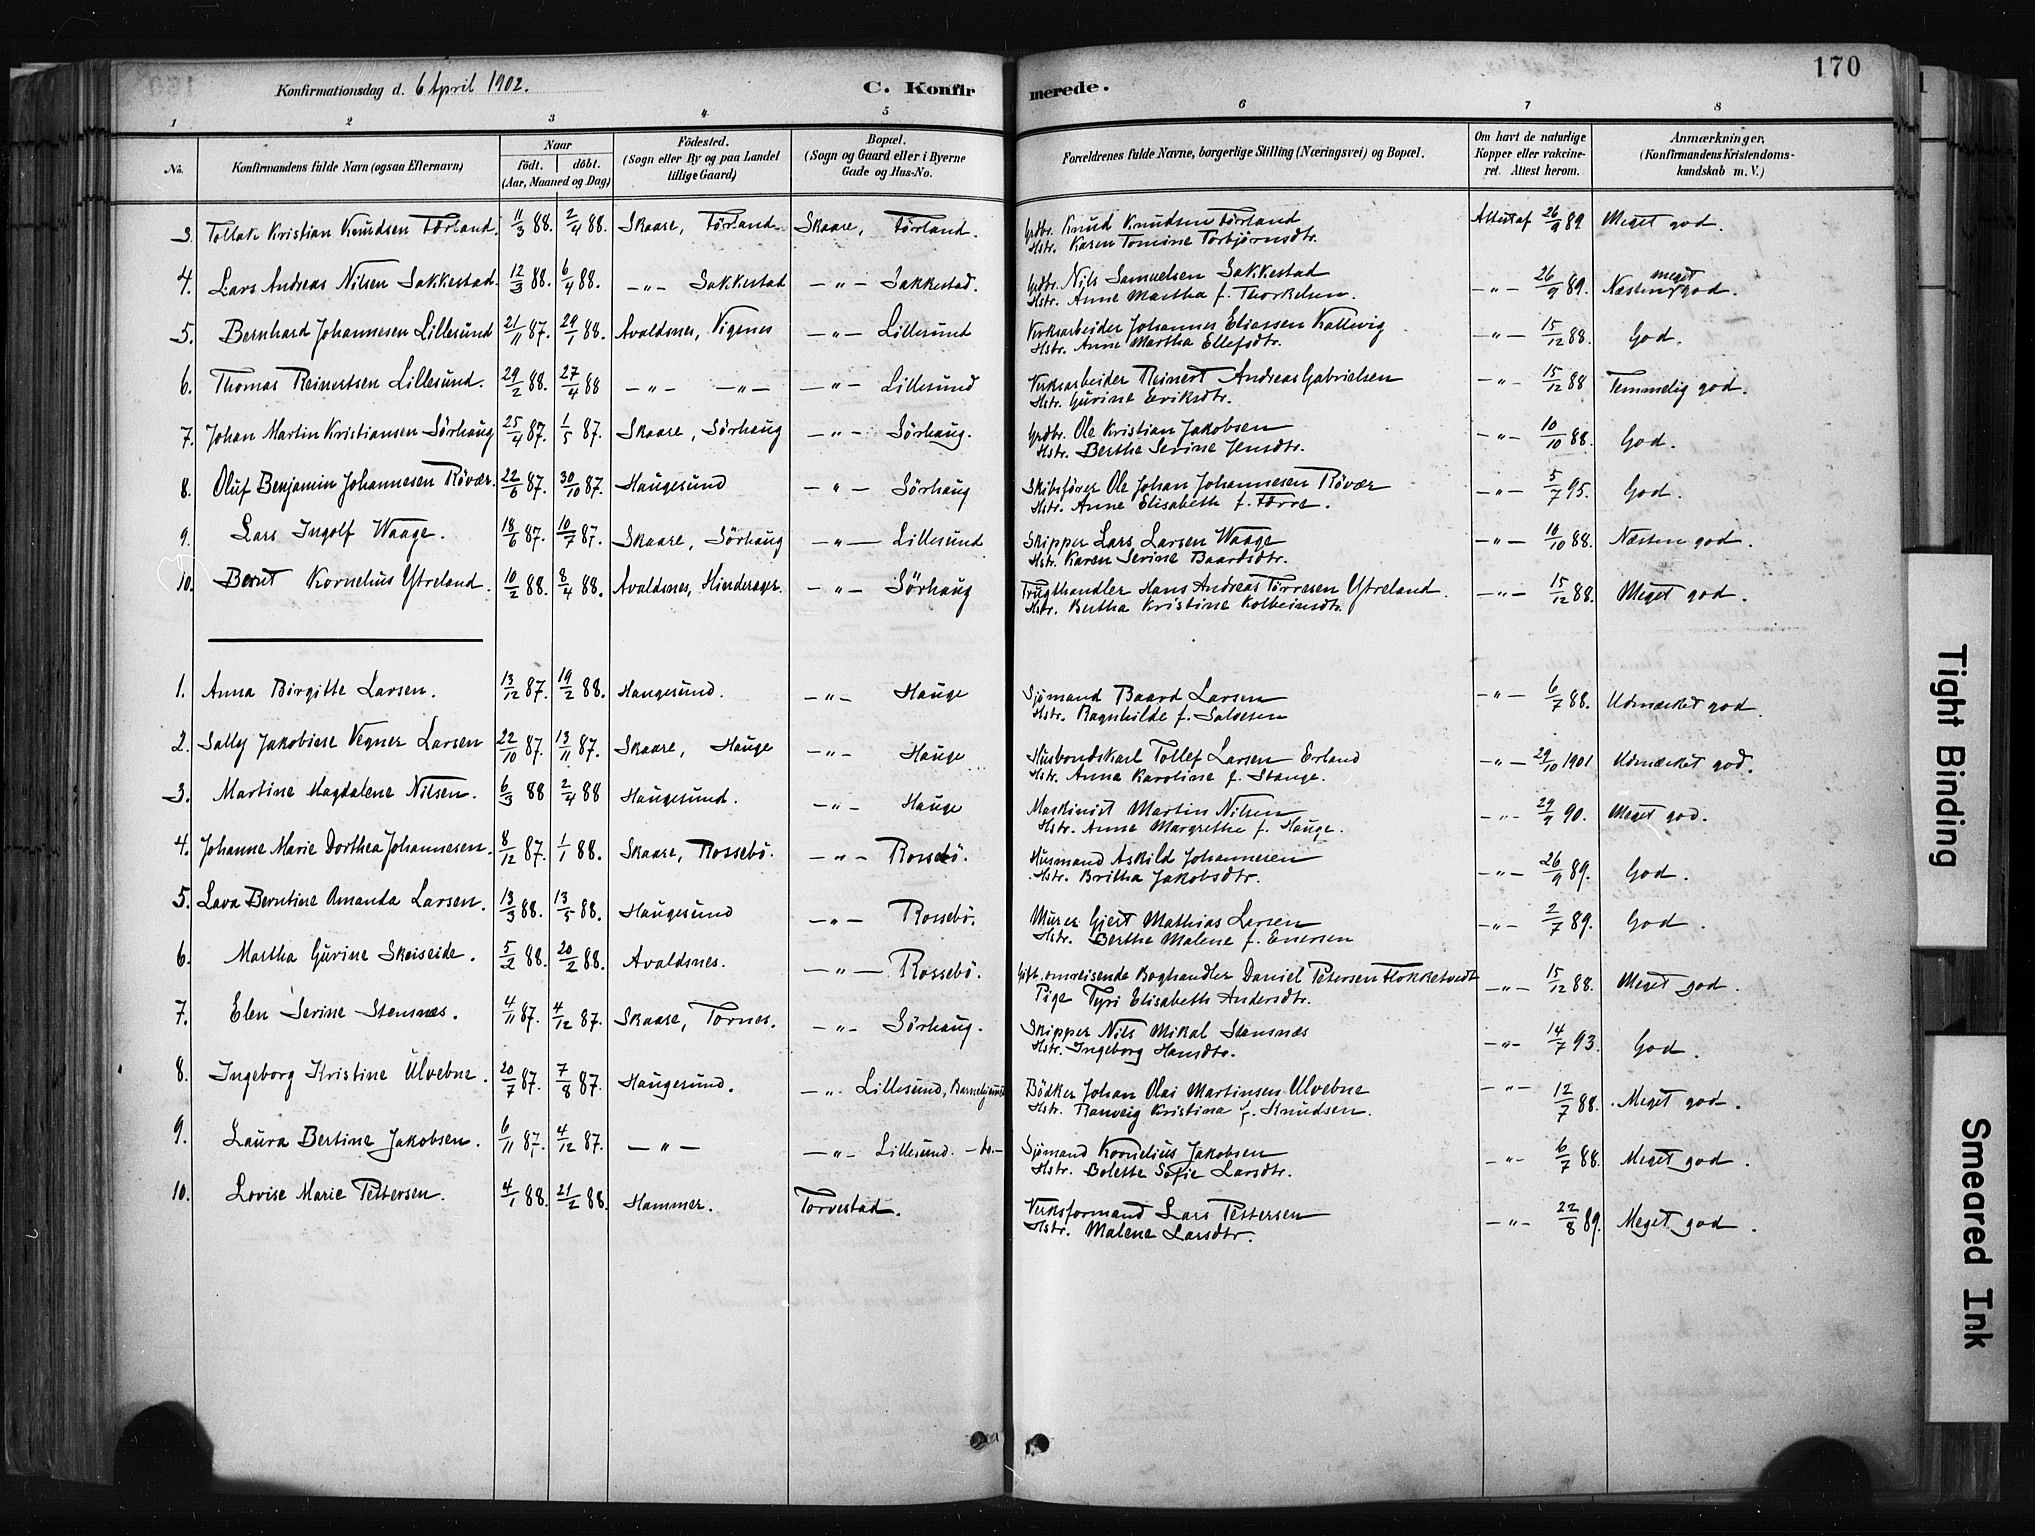 170
Konfirmationsdag d. 6 April 1902.
C. Konfirmerede.
1 2 3 4 5 6 7 8
No.
Konfirmandens fulde Navn (ogsaa Efternavn)
Naar
födt. döbt.
(Aar, Maaned og Dag)
Födested.
(Sogn eller By og paa Landet
tillige Gaard)
Bopæl.
(Sogn og Gaard eller i Byerne
Gade og Hus-No.
Forældrenes fulde Navne, borgerlige Stilling (Næringsvei) og Bopæl.
Om havt de naturlige
Kopper eller vakcine-
ret. Attest herom.
Anmærkninger,
(Konfirmandens Kristendoms-
kundskab m. V.)
3. Tollak Kristian Knudsen Förland. 11/3 88. 2/4 88. Skaare, Förland. Skaare, Förland. Grdbr. Knud Knudsen Förland Attest af 26/9 89 Meget god.
Hstr. Karen Tomine Torbjörnsdtr.
4. Lars Andreas Nilsen Sakkestad. 12/3 88. 6/4 88. —"— Sakkestad —"— Sakkestad. Grdbr. Nils Samuelsen Sakkestad —"— 26/9 89. Næsten meget god.
Hstr. Anne Martha f. Thorkelsen.
5. Bernhard Johannesen Lillesund 21/11 87. 29/1 88. Avaldsnes, Vigenes —"— Lillesund Verksarbeider Johannes Eliassen Kallevig —"— 15/12 88. God.
Hstr. Anne Martha Ellefsdtr.
6. Thomas Reinertsen Lillesund. 29/2 88. 27/4 88 —"— —"— —"— Lillesund Verksarbeider Reinert Andreas Gabrielsen —"— 15/12 88 Temmelig god.
Hstr. Gurine Eriksdtr.
7. Johan Martin Kristiansen Sörhaug 25/4 87. 1/5 87. Skaare, Sörhaug —"— Sörhaug. Grdbr. Ole Kristian Jakobsen —"— 10/10 88. God.
Hstr. Berthe Serine Jensdtr.
8. Oluf Benjamin Johannesen Rövær. 22/6 87. 30/10 87. Haugesund —"— Sörhaug Skibsförer Ole Johan Johannesen Rövær —"— 5/7 95. God.
Hstr. Anne Elisabeth f. Förre.
9. Lars Ingolf Waage. 18/6 87. 10/7 87. Skaare, Sörhaug —"— Lillesund Skipper Lars Larsen Waage —"— 10/10 88. Næsten god.
Hstr. Karen Serine Baardsdtr.
10. Berut Kornelius Ytreland. 10/2 88. 8/4 88. Avaldsnes, Hinderager. —"— Sörhaug Frugthandler Hans Andreas Törresen Ytreland. —"— 15/12 88. Meget god.
Hstr. Bertha Kristine Kolbeinsdtr.
1. Anna Birgitte Larsen. 13/12 87. 19/2 88. Haugesund. —"— Hauge Sjömand Baard Larsen —"— 6/7 88. Udmærket god.
Hstr. Ragnhilde f. Salvesen
2. Sally Jakobine Vegner Larsen 22/10 87. 13/11 87. Skaare, Hauge —"— Hauge Husbondskarl Tollef Larsen Erland —"— 29/10 1901 Udmærket god.
Hstr. Anna Karoline f. Stange.
3. Martine Magdalene Nilsen. 6/3 88 2/4 88 Haugesund. —"— Hauge Maskinist Martin Nilsen —"— 29/9 90. Meget god.
Hstr. Anne Margrethe f. Hauge.
4. Johanne Marie Dorthea Johannesen. 8/12 87. 1/1 88. Skaare, Rossebö. —"— Rossebö. Husmand Askild Johannesen —"— 26/9 89. God.
Hstr. Britha Jakobsdtr.
5. Lava Berntine Amanda Larsen. 13/3 88. 13/5 88. Haugesund —"— Rossebö. Murer Gjert Mathias Larsen —"— 2/7 89. God.
Hstr. Berthe Malene f. Enersen
6. Martha Gurine Skeiseide. 5/2 88. 20/2 88. Avaldsnes. —"— Rossebö. Gift. omreisende Boghandler Daniel Petersen Flokketvedt —"— 15/12 88. Meget god.
Pige Tyri Elisabeth Andersdtr.
7. Elen Serine Stensnæs. 4/11 87. 4/12 87. Skaare, Tornes. —"— Sörhaug. Skipper Nils Mikal Stensnæs —"— 14/7 93. God.
Hstr. Ingeborg Hansdtr.
8. Ingeborg Kristine Ulvebne. 20/7 87. 7/8 87. Haugesund. —"— Lillesund, Bödker Johan Olai Martinsen Ulvebne —"— 12/7 88. Meget god.
Hstr. Ranveig Kristina f. Knudsen.
9. Laura Bertine Jakobsen. 6/11 87. 4/12 87. —"— —"— Lillesund. —do.— Sjömand Kornelius Jakobsen —"— 6/7 88. Meget god.
Hstr. Bolette Sofie Larsdtr.
10. Lovise Marie Pettersen. 4/1 88. 21/2 88. Hammer. Torvestad. Verksformand Lars Pettersen —"— 22/8 89. Meget god.
Hstr. Malene Larsdtr.
Tight Binding
Smeared Ink